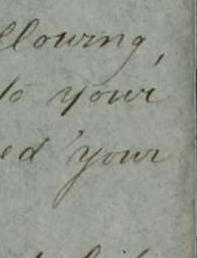 llowing,
to your
ed your